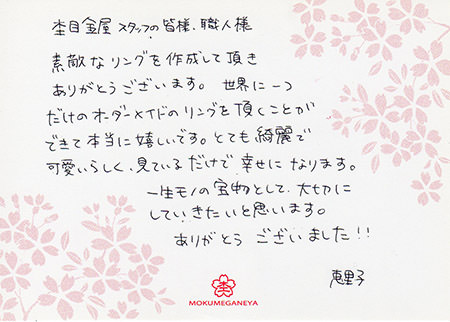 杢目金屋 スタッフの皆様、職人様
素敵なリングを作成して頂き
ありがとうございます。世界に一つ
だけのオーダーメイドのリングを頂くことが
できて本当に嬉しいです。とても綺麗で
可愛いらしく、見ているだけで幸せになります。
一生モノの宝物として、大切に
していきたいと思います。
ありがとう ございました!!
恵里子
杢
MOKUMEGANEYA